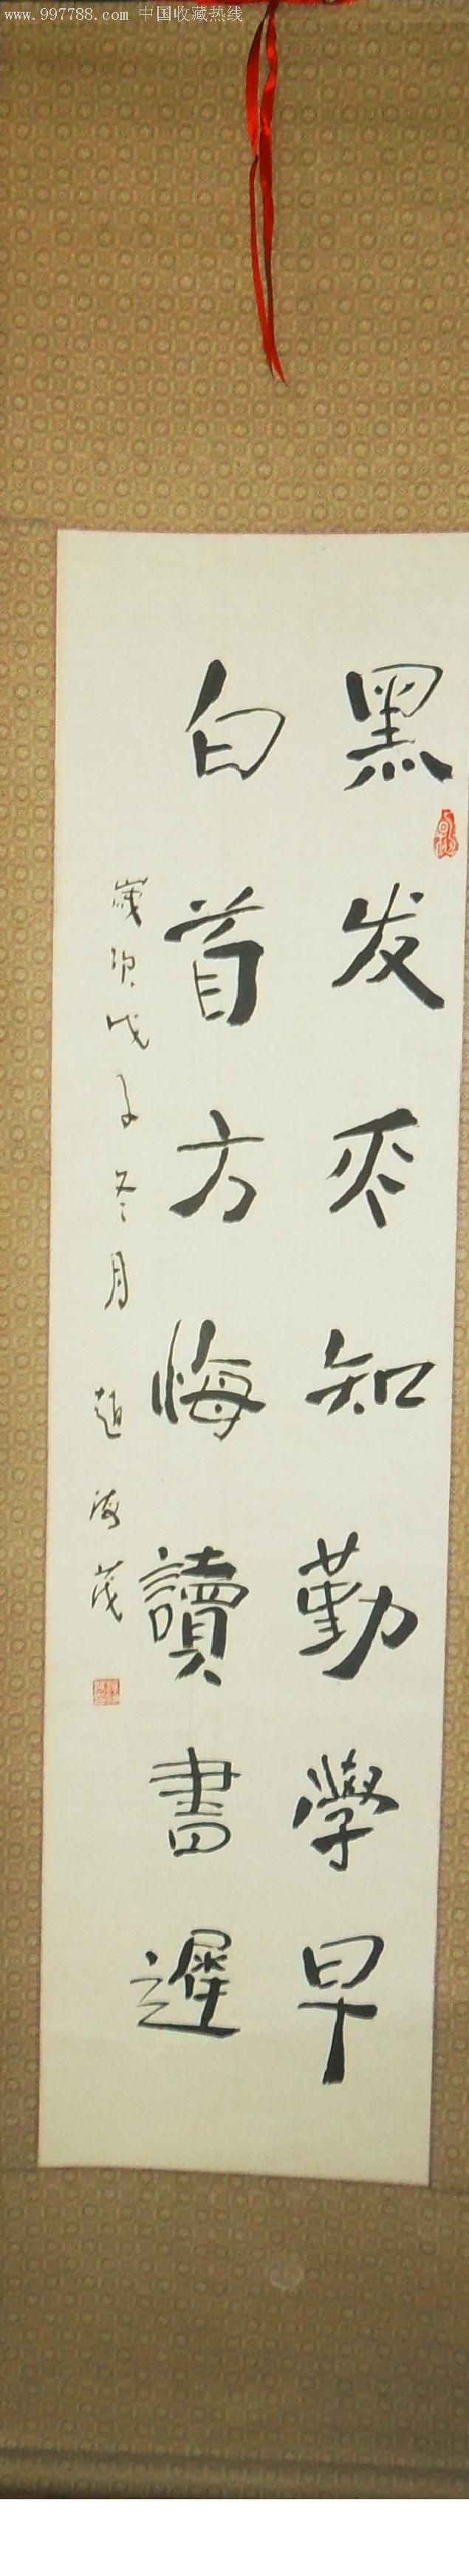 www.997788.com 中国收藏热线
黑发不知勤學早
白首方悔讀書遲
歲次戊子冬月 趙海茂